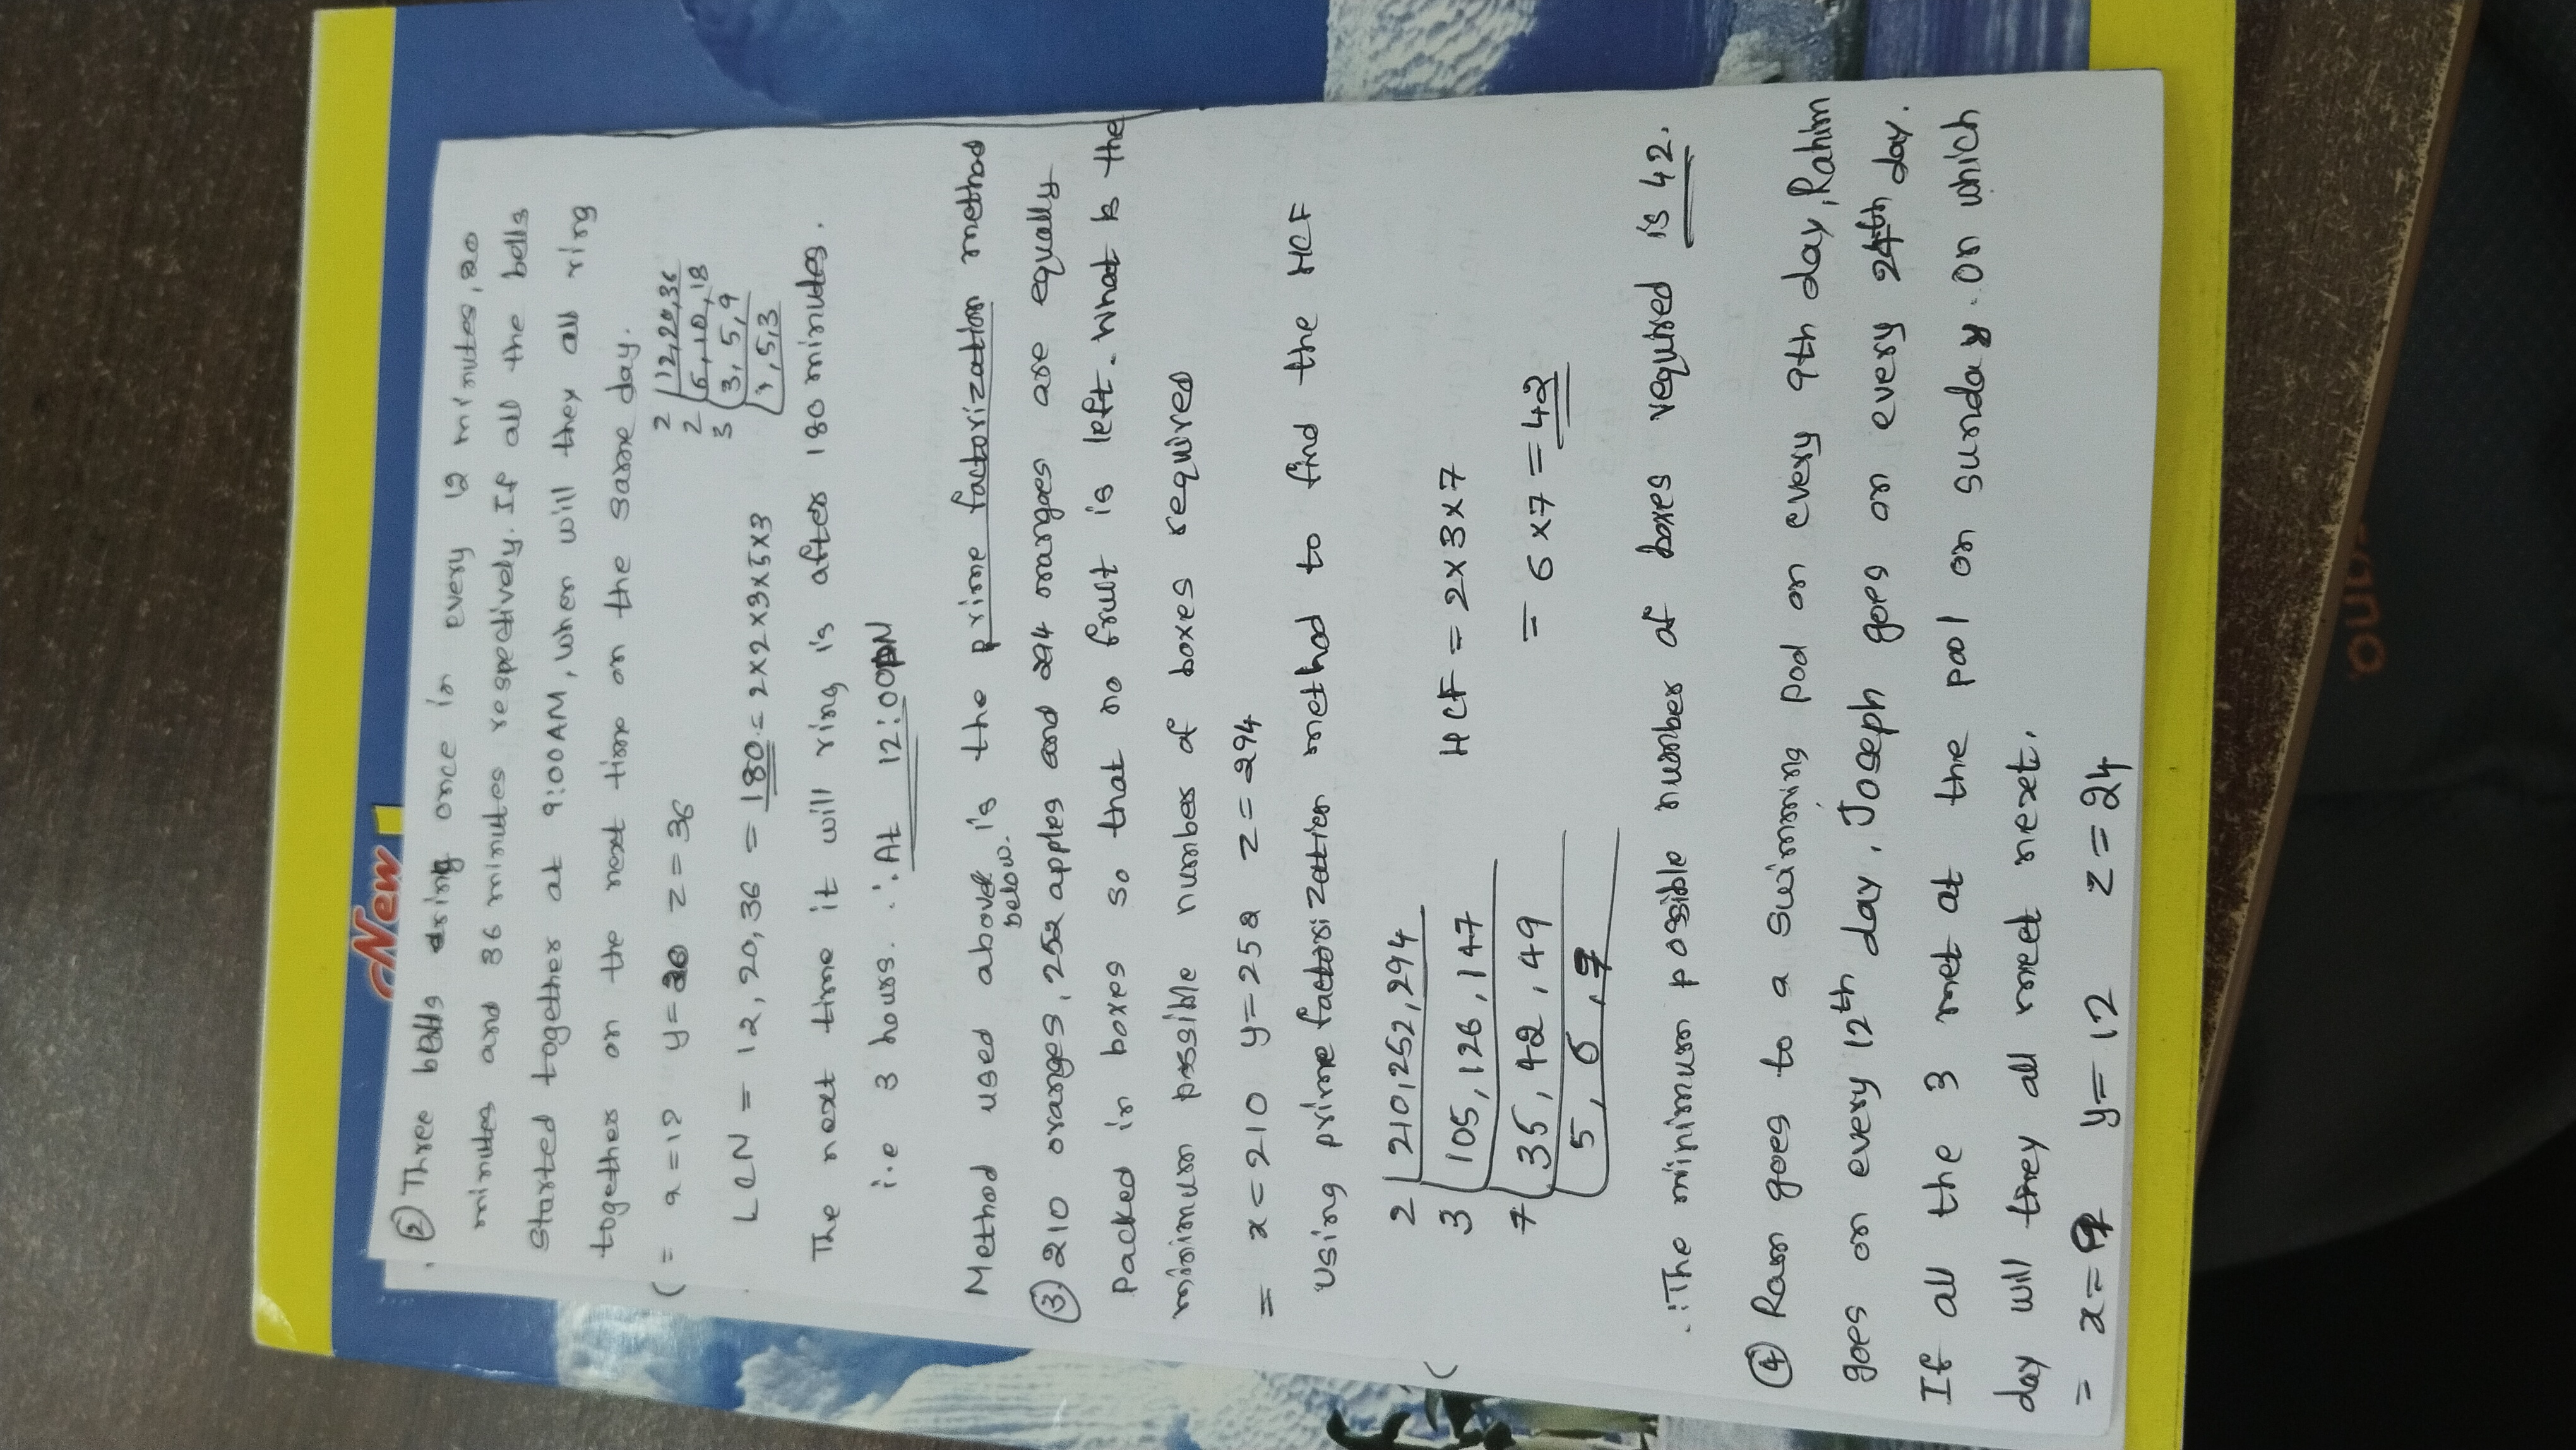 New
② Three bells ring once in every 12 minutes, 20
minutes and 36 minutes respectively. If all the bells
started together at 9:00AM, when will they all ring
together on the next time on the same day.
= x=12 y=20 z=36
2 | 12,20,36
2 | 6,10,18
3 | 3,5,9
1,5,3
LCM = 12,20,36 = 180 = 2×2×3×5×3
The next time it will ring is after 180 minutes.
i.e 3 hours. ∴ At 12:00PM
Method used above is the prime factorization method
below.
③ 210 oranges, 252 apples and 294 oranges are equally
packed in boxes so that no fruit is left. What is the
minimum possible number of boxes required
= x=210 y=252 z=294
Using prime factorization method to find the HCF
2 | 210,252,294
3 | 105,126,147
7 | 35,42,49
5,6,7
HCF = 2×3×7
= 6×7=42
∴ The minimum possible number of boxes required is 42.
④ Ram goes to a swimming pool on every 9th day, Rahim
goes on every 12th day, Joseph goes on every 24th day.
If all the 3 met at the pool on sunday. On which
day will they all meet next.
= x=9 y=12 z=24